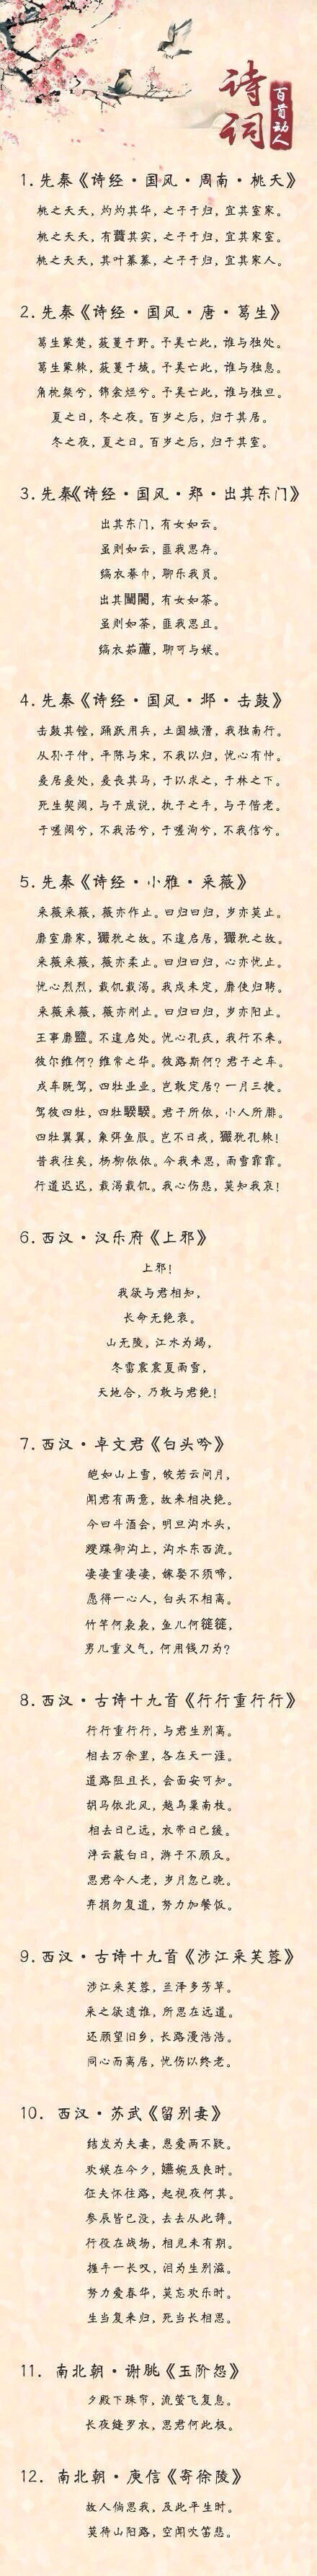 诗词
百首动人
1.先秦《诗经·国风·周南·桃夭》
桃之夭夭，灼灼其华，之子于归，宜其室家。
桃之夭夭，有蕡其实，之子于归，宜其家室。
桃之夭夭，其叶蓁蓁，之子于归，宜其家人。
2.先秦《诗经·国风·唐·葛生》
葛生蒙楚，蔹蔓于野。予美亡此，谁与独处。
葛生蒙棘，蔹蔓于域。予美亡此，谁与独息。
角枕粲兮，锦衾烂兮。予美亡此，谁与独旦。
夏之日，冬之夜。百岁之后，归于其居。
冬之夜，夏之日。百岁之后，归于其室。
3.先秦《诗经·国风·郑·出其东门》
出其东门，有女如云。
虽则如云，匪我思存。
缟衣綦巾，聊乐我员。
出其闉闍，有女如荼。
虽则如荼，匪我思且。
缟衣茹藘，聊可与娱。
4.先秦《诗经·国风·邶·击鼓》
击鼓其镗，踊跃用兵，土国城漕，我独南行。
从孙子仲，平陈与宋，不我以归，忧心有忡。
爰居爰处，爰丧其马，于以求之，于林之下。
死生契阔，与子成说，执子之手，与子偕老。
于嗟阔兮，不我活兮，于嗟洵兮，不我信兮。
5.先秦《诗经·小雅·采薇》
采薇采薇，薇亦作止。曰归曰归，岁亦莫止。
靡室靡家，玁狁之故。不遑启居，玁狁之故。
采薇采薇，薇亦柔止。曰归曰归，心亦忧止。
忧心烈烈，载饥载渴。我戍未定，靡使归聘。
采薇采薇，薇亦刚止。曰归曰归，岁亦阳止。
王事靡盬。不遑启处。忧心孔疚，我行不来。
彼尔维何？维常之华。彼路斯何？君子之车。
戎车既驾，四牡业业。岂敢定居？一月三捷。
驾彼四牡，四牡骙骙。君子所依，小人所腓。
四牡翼翼，象弭鱼服。岂不日戒，玁狁孔棘！
昔我往矣，杨柳依依。今我来思，雨雪霏霏。
行道迟迟，载渴载饥。我心伤悲，莫知我哀！
6.西汉·汉乐府《上邪》
上邪！
我欲与君相知，
长命无绝衰。
山无陵，江水为竭，
冬雷震震夏雨雪，
天地合，乃敢与君绝！
7.西汉·卓文君《白头吟》
皑如山上雪，皎若云间月，
闻君有两意，故来相决绝。
今日斗酒会，明旦沟水头，
躞蹀御沟上，沟水东西流。
凄凄重凄凄，嫁娶不须啼，
愿得一心人，白头不相离。
竹竿何袅袅，鱼儿何簁簁，
男儿重义气，何用钱刀为？
8.西汉·古诗十九首《行行重行行》
行行重行行，与君生别离。
相去万余里，各在天一涯。
道路阻且长，会面安可知。
胡马依北风，越鸟巢南枝。
相去日已远，衣带日已缓。
浮云蔽白日，游子不顾反。
思君令人老，岁月忽已晚。
弃捐勿复道，努力加餐饭。
9.西汉·古诗十九首《涉江采芙蓉》
涉江采芙蓉，兰泽多芳草。
采之欲遗谁，所思在远道。
还顾望旧乡，长路漫浩浩。
同心而离居，忧伤以终老。
10. 西汉·苏武《留别妻》
结发为夫妻，恩爱两不疑。
欢娱在今夕，嬿婉及良时。
征夫怀往路，起视夜何其。
参辰皆已没，去去从此辞。
行役在战场，相见未有期。
握手一长叹，泪为生别滋。
努力爱春华，莫忘欢乐时。
生当复来归，死当长相思。
11. 南北朝·谢朓《玉阶怨》
夕殿下珠帘，流萤飞复息。
长夜缝罗衣，思君何此极。
12. 南北朝·庾信《寄徐陵》
故人倘思我，及此平生时。
莫待山阳路，空闻吹笛悲。